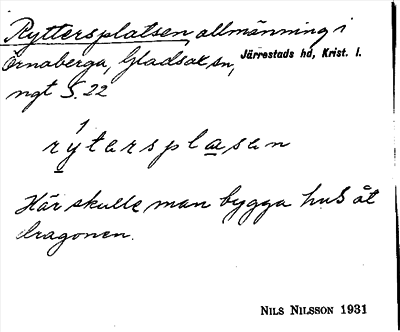 Ryttersplatsen, allmänning i
Örnaberga, Gladsax sn, Järrestads hd, Krist. l.
ngt S. 22
rytersplasen
Här skulle man bygga hus åt
dragonen.
NILS NILSSON 1931